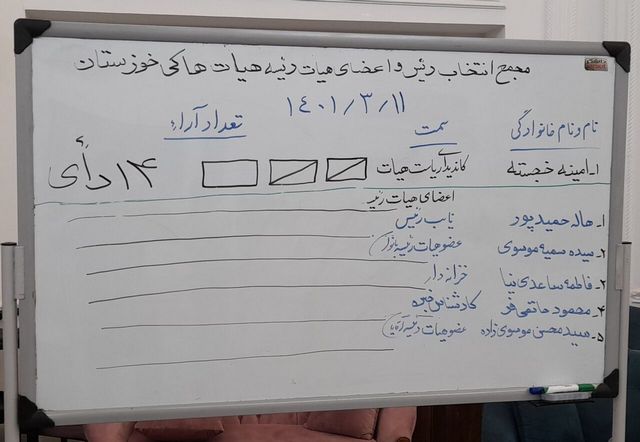 مجمع انتخاب رئیس و اعضای هیات رئیسه هیات هاکی خوزستان
۱۴۰۱/۳/۱۱
نام و نام خانوادگی سمت تعداد آراء
۱ـ امینه خجسته کاندیدای ریاست هیات ۱۴ رأی
اعضای هیات رئیسه
۱ـ هاله حمیدپور نایب رئیس
۲ـ سیده سمیه موسوی عضو هیات رئیسه بانوان
۳ـ فاطمه ساعدی نیا خزانه دار
۴ـ محمود حاتمی فر کارشناس خبره
۵ـ سید محسن موسوی زاده عضو هیات رئیسه آقایان